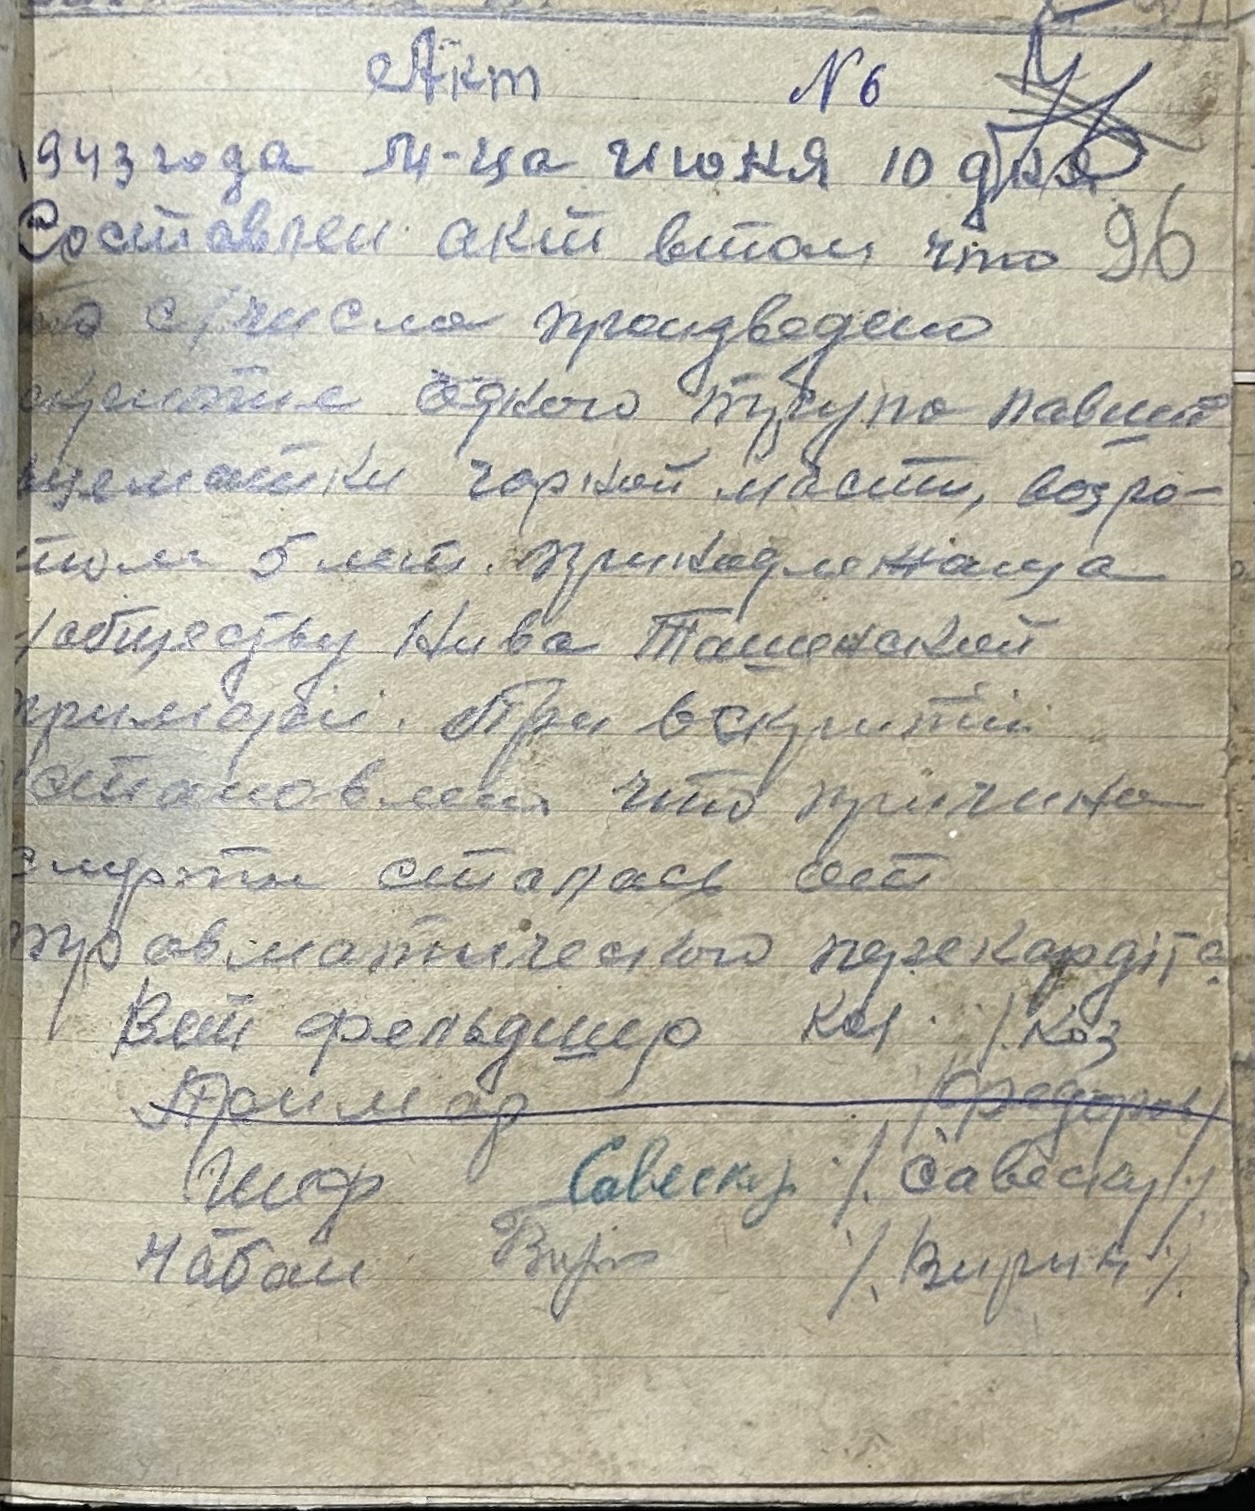 Акт N 6
1943 года М-ца июня 10 дня
Составлен акт втом что 96
сего числа произведено
вскрытие одного трупа павшей
овцематки чорной масти, возро-
стом 5 лет. принадлежаща
обществу Нива Ташенской
примарії. При вскритіи
установлен что причина
смерти сталась от
тровматического перекардіта.
Вет фельдшер Коз /. Коз
Примар /Федоров/
Шеф Савеску /. Савеску /.
Чабан Вирн /. Вирик /.